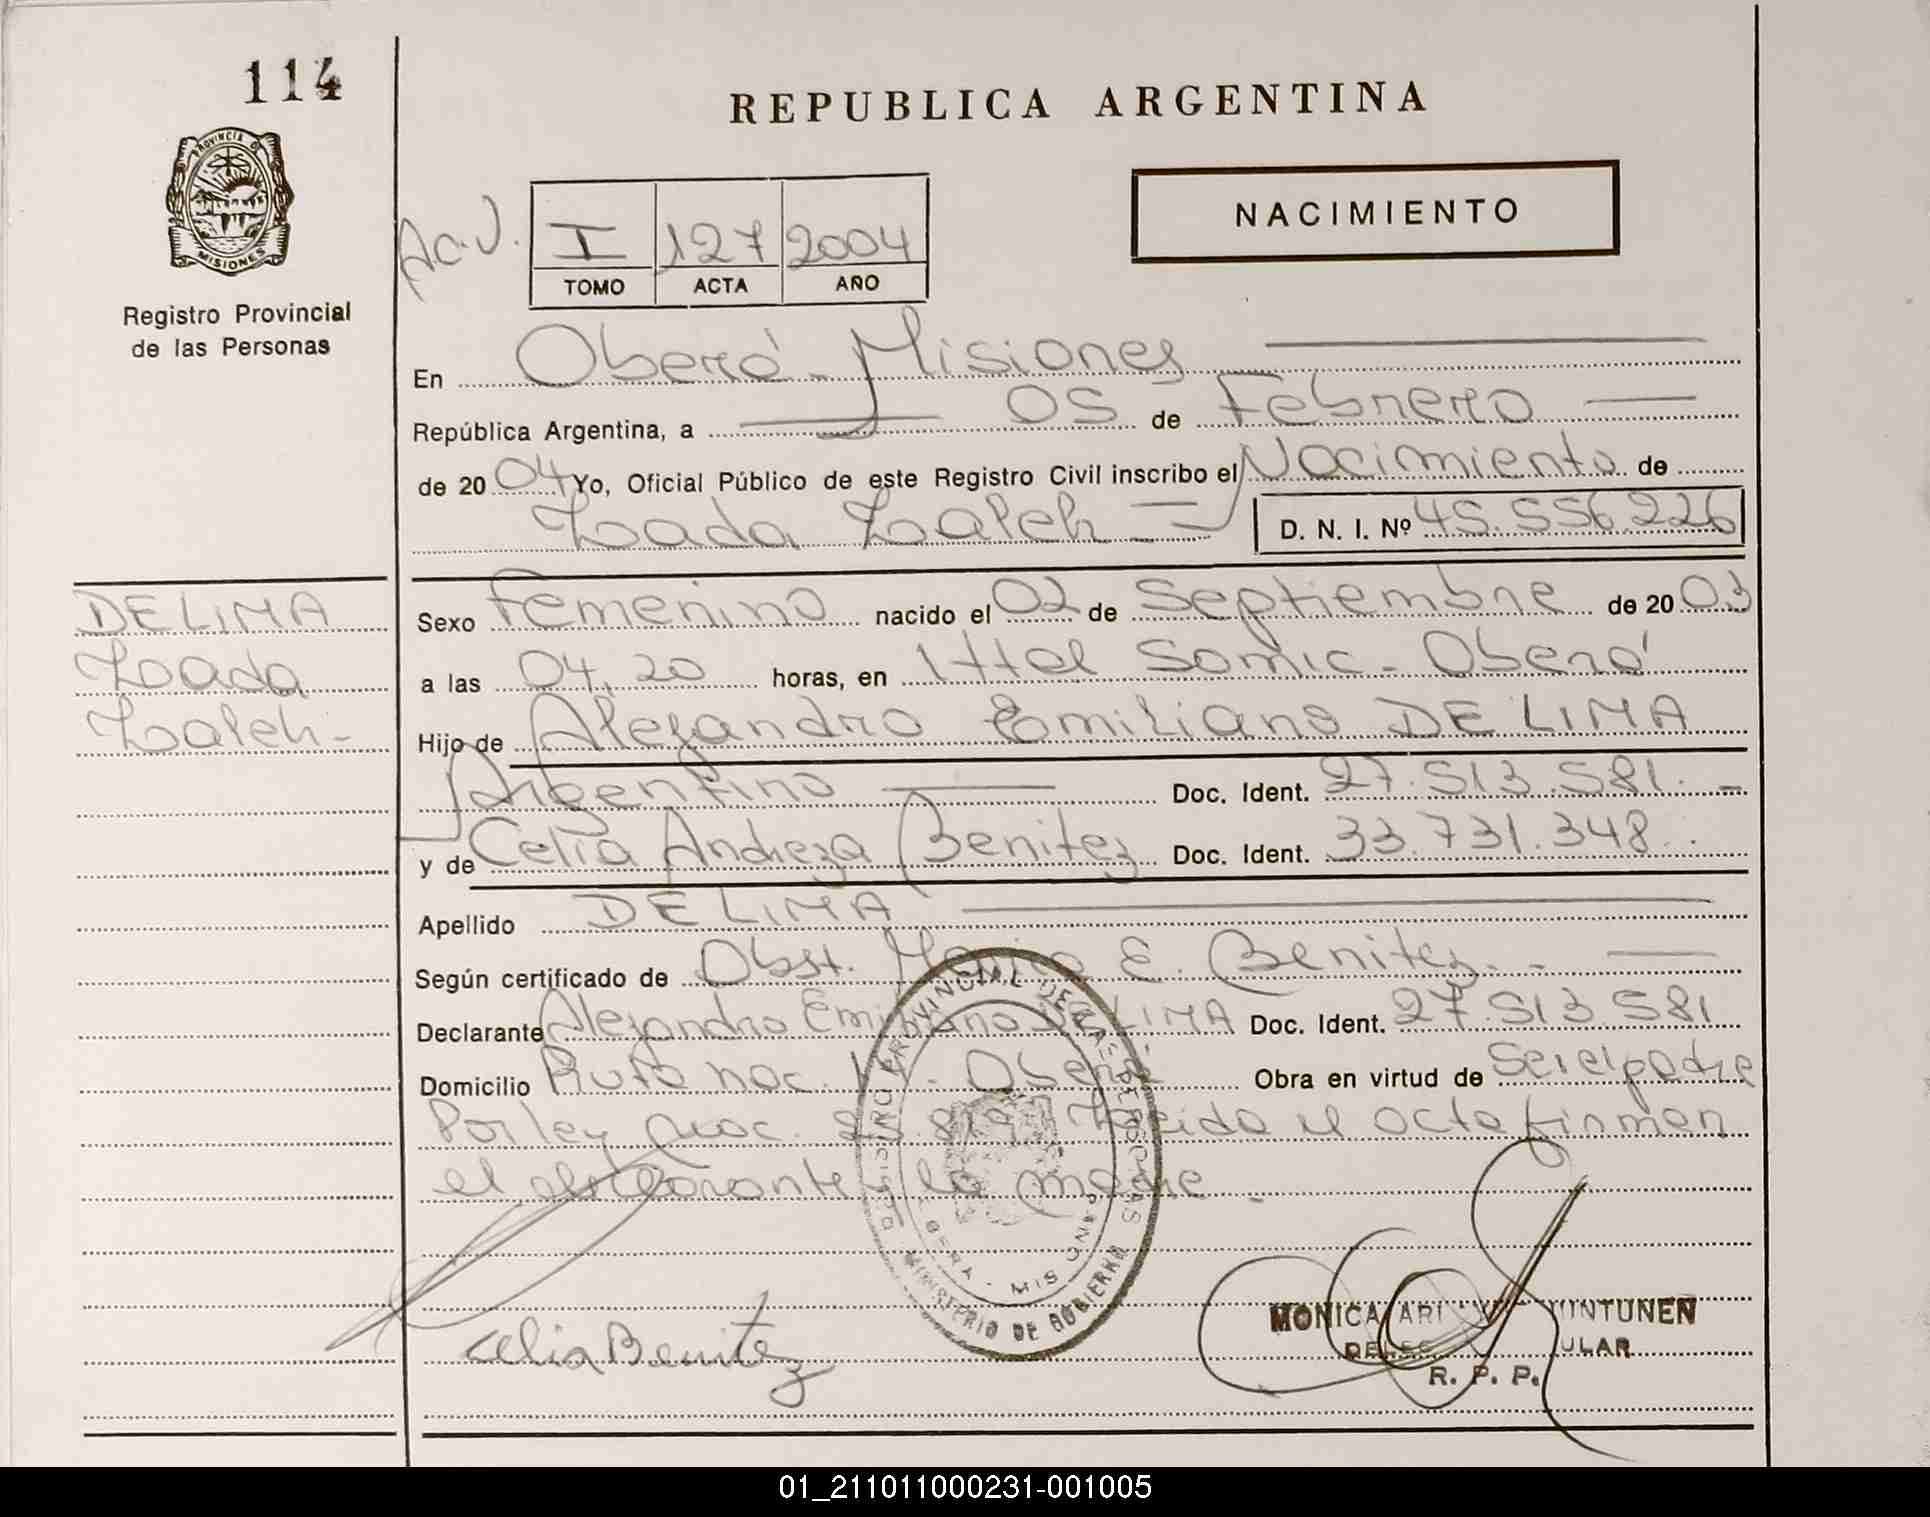 114
REPUBLICA ARGENTINA
PROVINCIA DE
MISIONES
Registro Provincial
de las Personas
NACIMIENTO
Ac.J.
I 127 2004
TOMO ACTA AÑO
En Oberá - Misiones
República Argentina, a 05 de Febrero
de 2004 Yo, Oficial Público de este Registro Civil inscribo el Nacimiento de
D. N. I. Nº 45.556.226
DE LIMA
Sexo Femenino nacido el 02 de Septiembre de 2003
a las 04,20 horas, en Ittel Somic - Oberá
Hijo de Alejandro Emiliano DE LIMA
Argentino Doc. Ident. 27.513.581.-
y de Celia Andreza Benitez Doc. Ident. 33.731.348.
Apellido DE LIMA
Según certificado de Obst. E. Benitez.-
Declarante Alejandro Emiliano DE LIMA Doc. Ident. 27.513.581
Domicilio Ruta nac. Oberá Obra en virtud de Ser el padre
Por ley nac. Leída el acta firman
el declarante y la madre.
REGISTRO PROVINCIAL DE LAS PERSONAS
MINISTERIO DE GOBIERNO
Celia Benitez
MONICA YUNTUNEN
R. P. P.
01_211011000231-001005